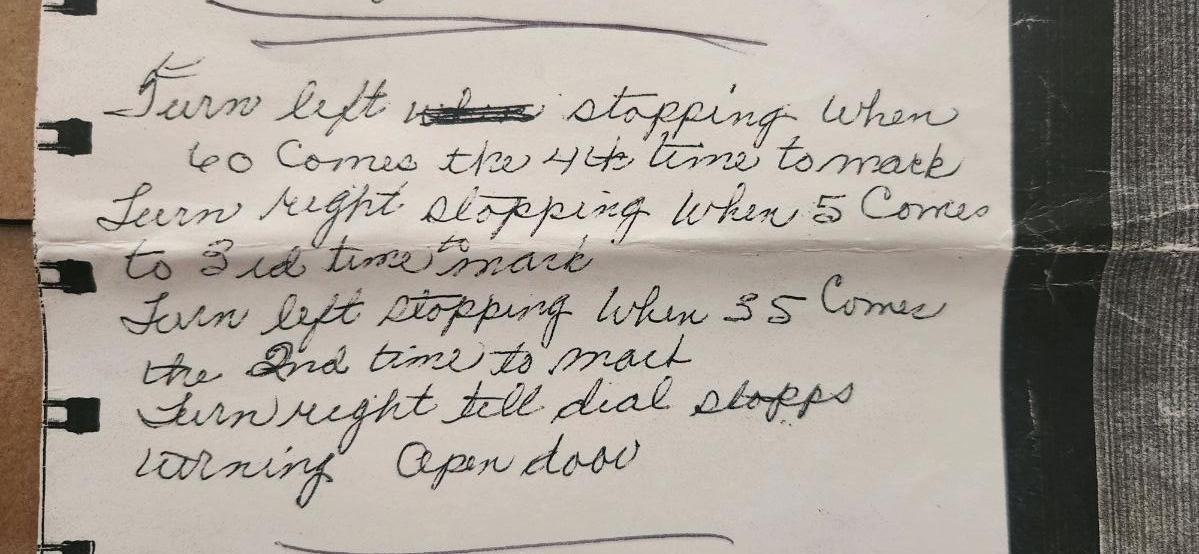 Turn left stopping when
60 Comes the 4th time to mark
Turn right stopping when 5 Comes
to 3rd time to mark
Turn left stopping when 35 Comes
the 2nd time to mark
Turn right till dial stopps
turning Open door